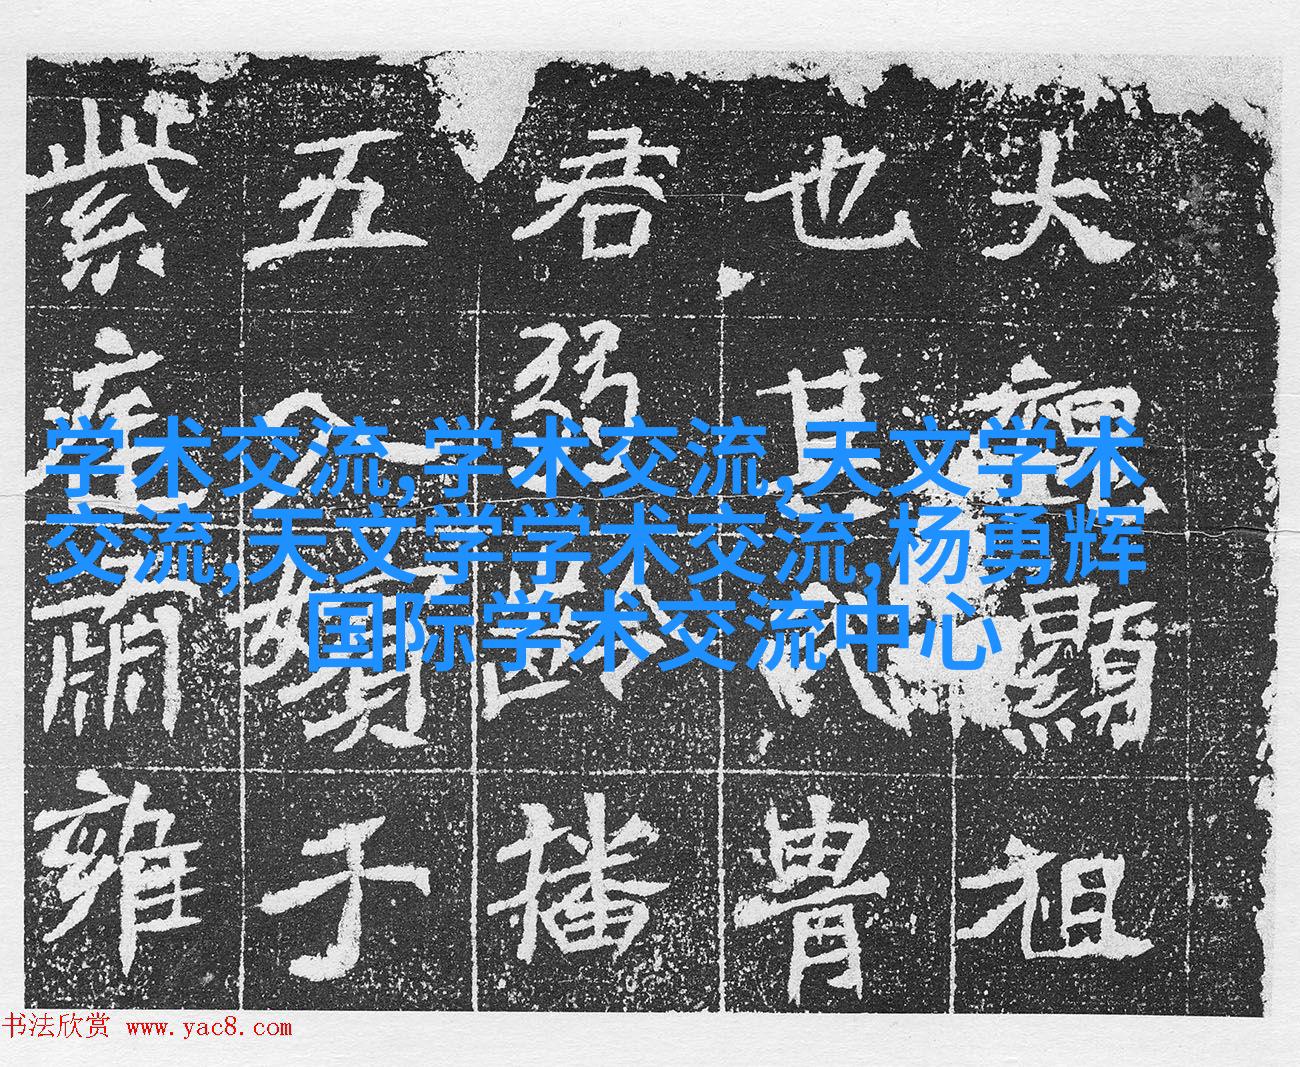 大顯祖
也其胄
君弱齡播
五于
紫肅雍
学术交流,学术交流,天文学术
交流,天文学学术交流,杨勇辉
国际学术交流中心
书法欣赏 www.yac8.com